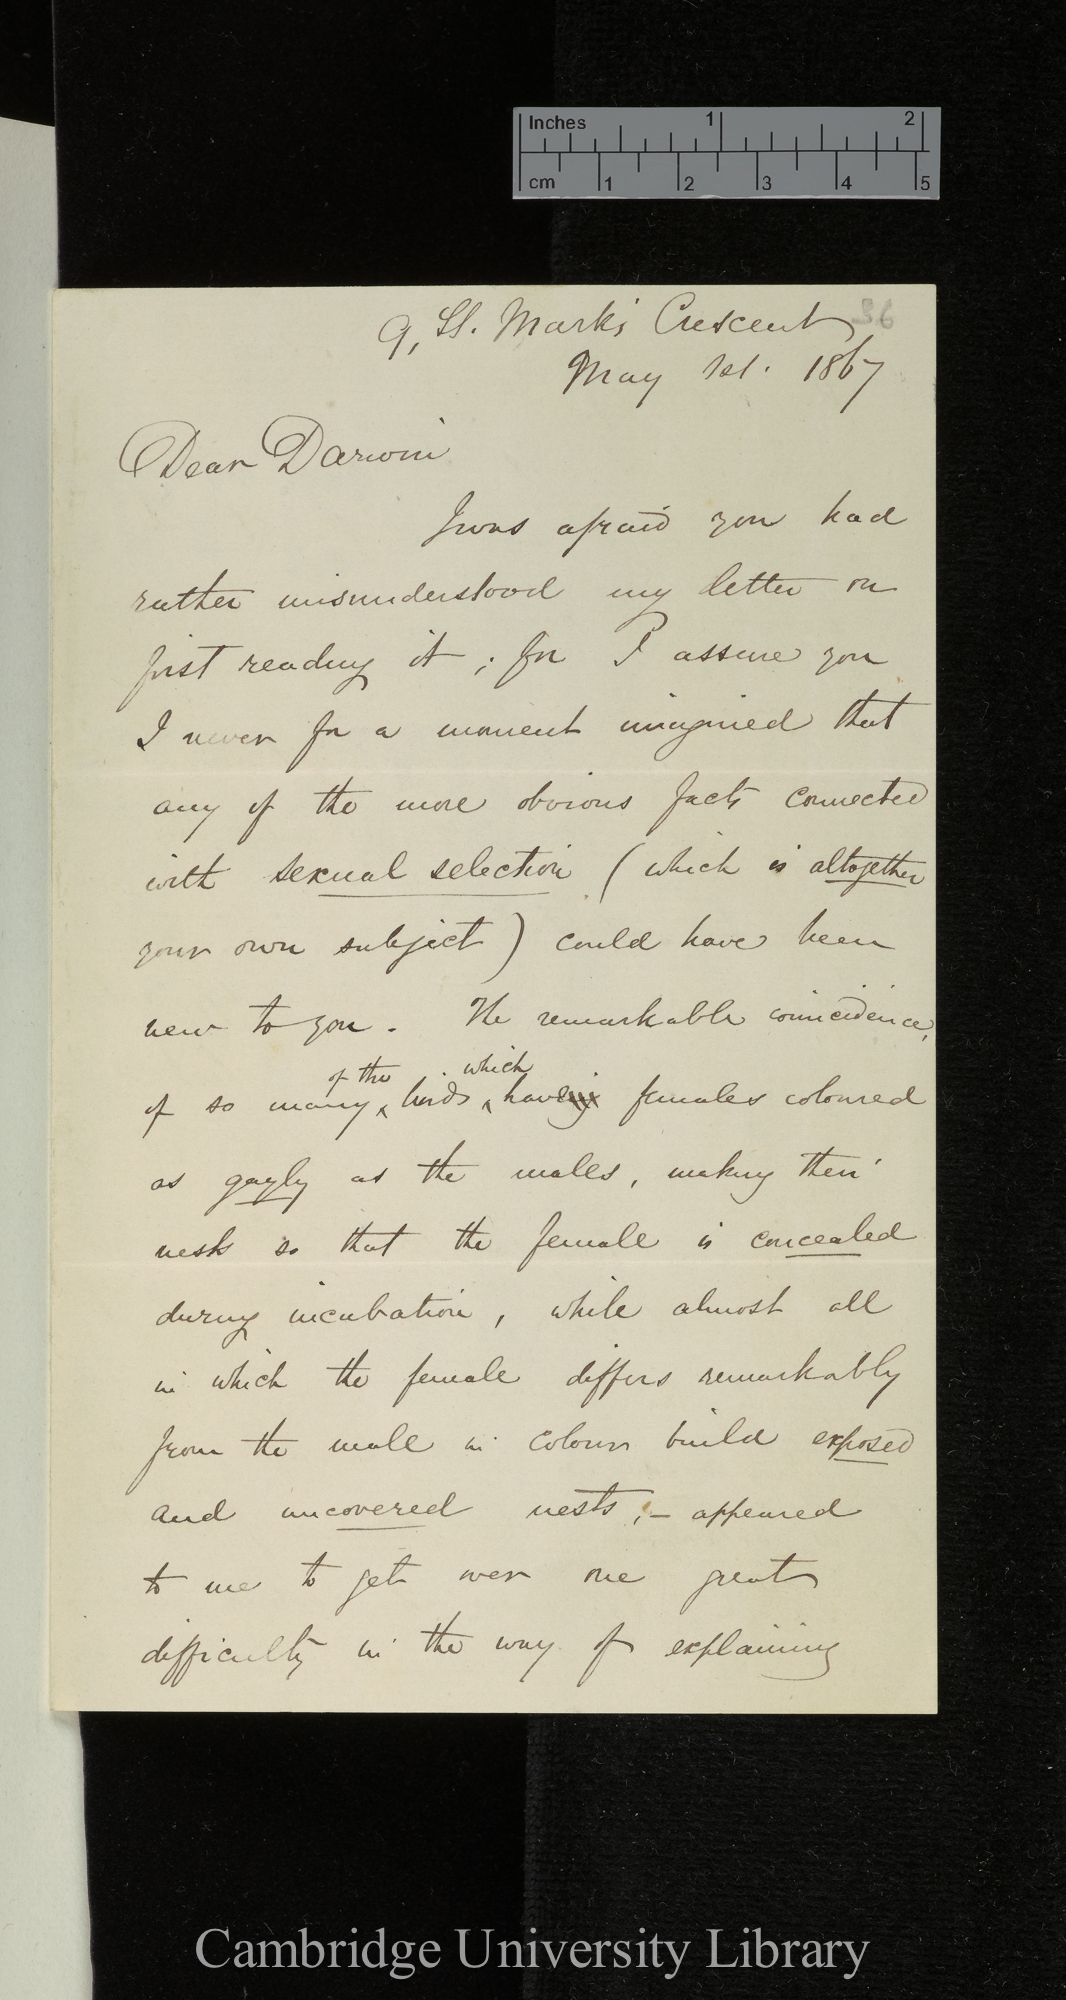 Inches 1 2
cm 1 2 3 4 5
36
9, St. Mark's Crescent
May 1st. 1867
Dear Darwin
I was afraid you had
rather misunderstood my letter on
first reading it; for I assure you
I never for a moment imagined that
any of the more obvious facts connected
with sexual selection (which is altogether
your own subject) could have been
new to you. The remarkable coincidence,
of the which
of so many birds having females coloured
as gayly as the males, making their
nests so that the female is concealed
during incubation, while almost all
in which the female differs remarkably
from the male in colour build exposed
and uncovered nests;— appeared
to me to get over one great
difficulty in the way of explaining
Cambridge University Library